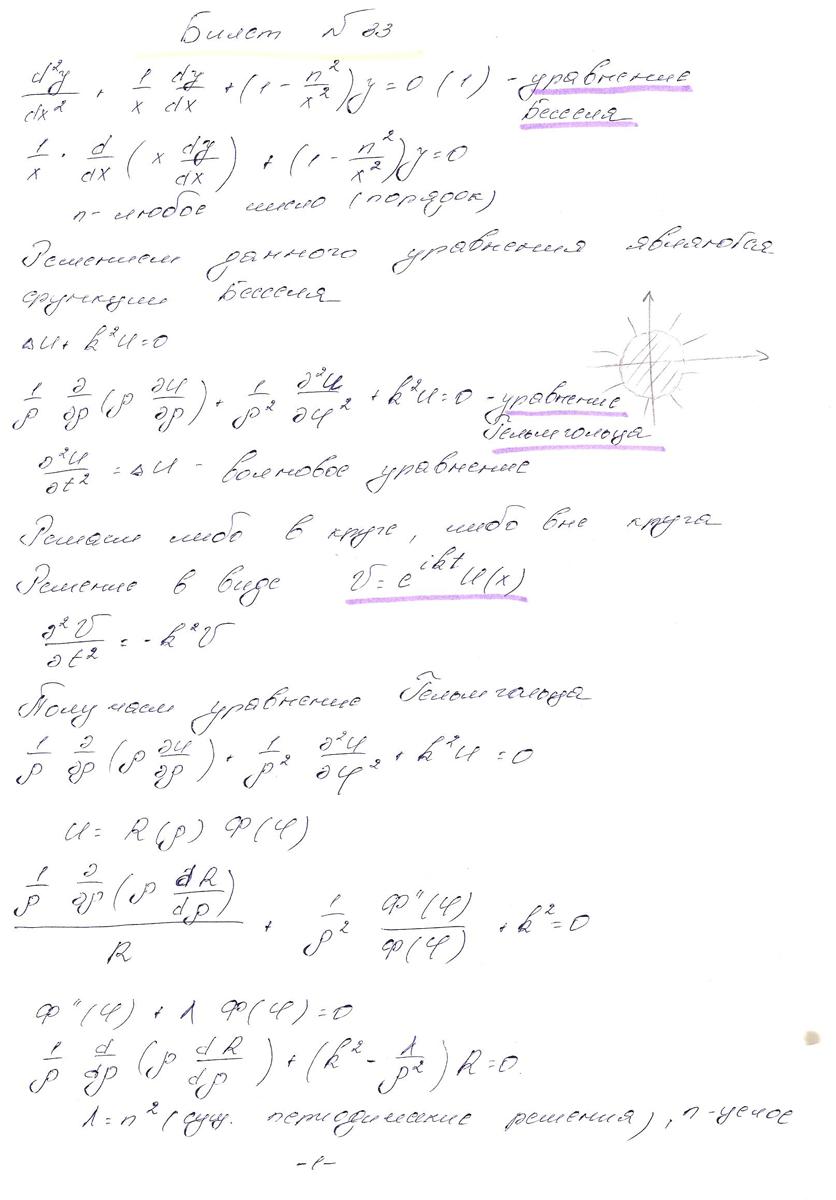 Билет №33
d²y/dx² + 1/x dy/dx + (1 - n²/x²)y = 0 (1) - уравнение
Бесселя
1/x · d/dx (x dy/dx) + (1 - n²/x²)y = 0
n - любое число (порядок)
Решением данного уравнения являются
функции Бесселя
Δu + k²u = 0
1/ρ ∂/∂ρ (ρ ∂u/∂ρ) + 1/ρ² ∂²u/∂φ² + k²u = 0 - уравнение
Гельмгольца
∂²u/∂t² = Δu - волновое уравнение
Решаем либо в круге, либо вне круга
Решение в виде V = e^{ikt} u(x)
∂²V/∂t² = -k²V
Получаем уравнение Гельмгольца
1/ρ ∂/∂ρ (ρ ∂u/∂ρ) + 1/ρ² ∂²u/∂φ² + k²u = 0
u = R(ρ) Φ(φ)
(1/ρ ∂/∂ρ (ρ dR/dρ))/R + 1/ρ² Φ''(φ)/Φ(φ) + k² = 0
Φ''(φ) + λ Φ(φ) = 0
1/ρ d/dρ (ρ dR/dρ) + (k² - λ/ρ²) R = 0.
λ = n² (сущ. периодические решения), n - целое
-1-